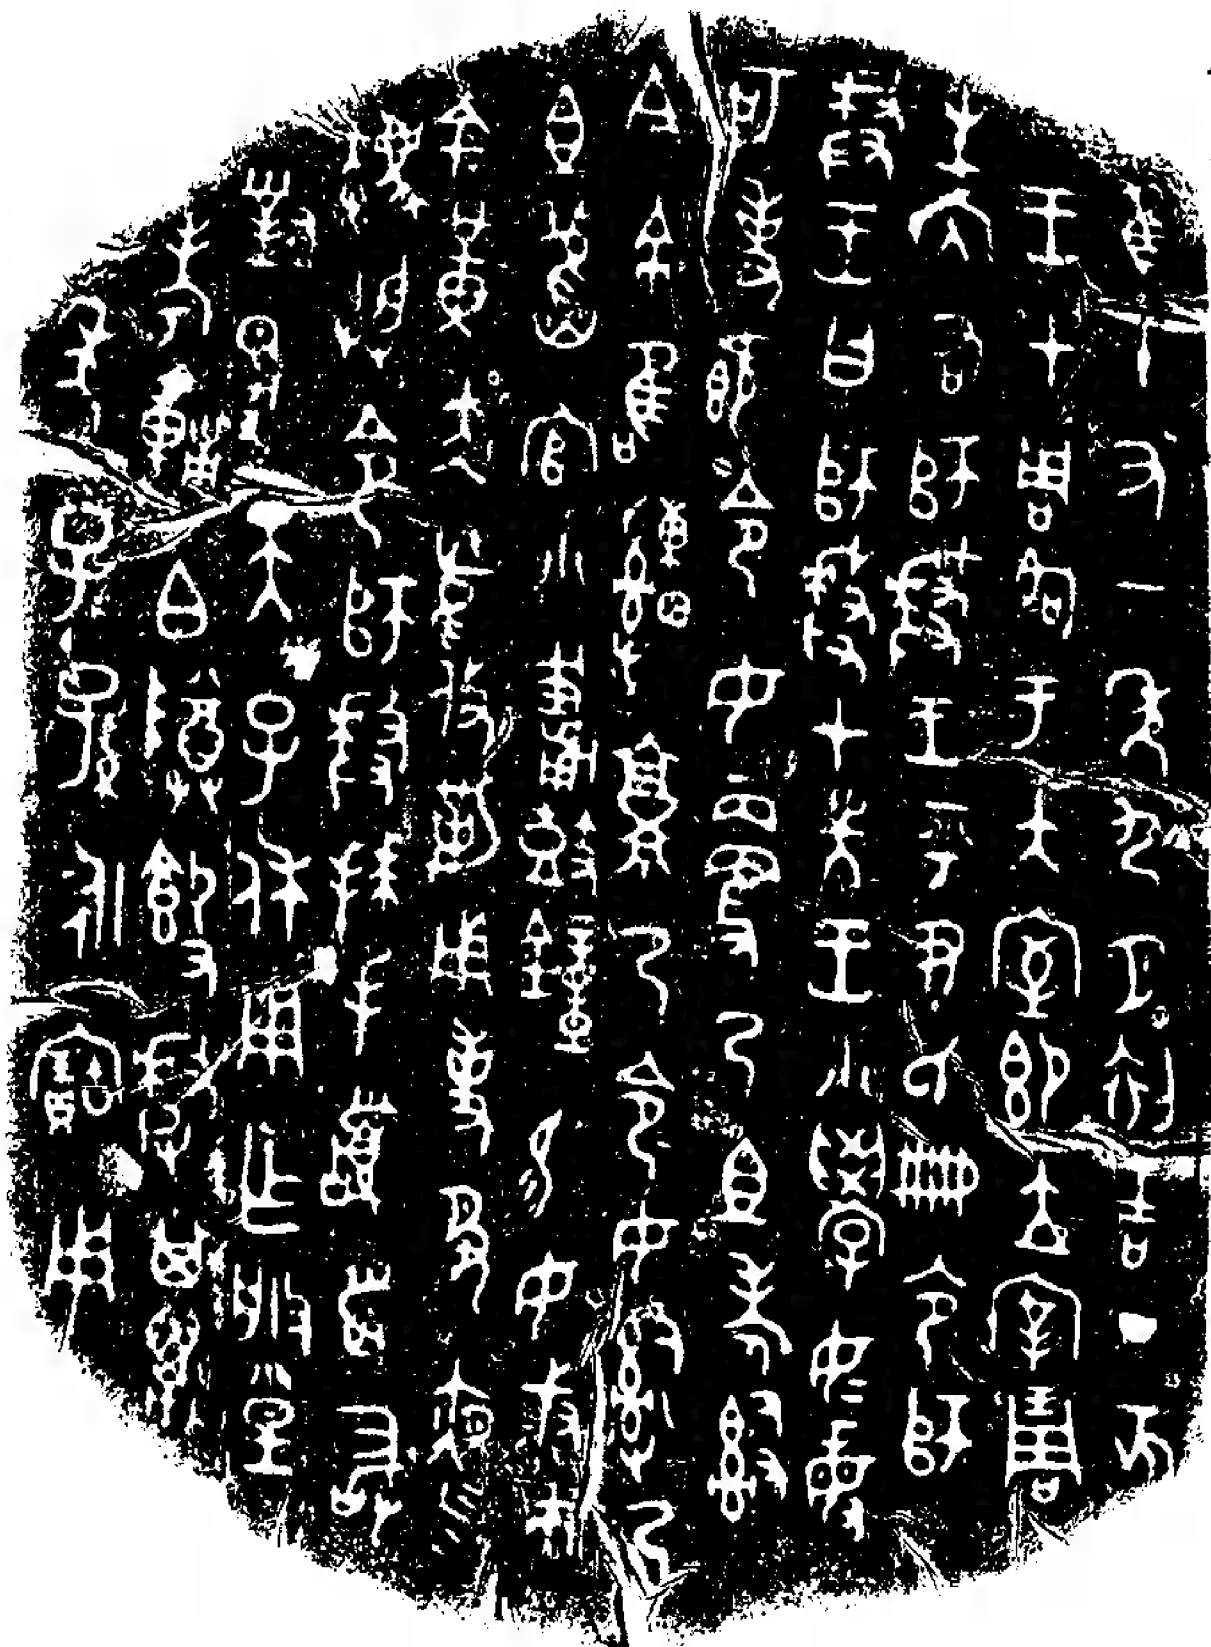 隹十又一年九月初吉丁亥
王才周各于大室即立宰琱
生內右師嫠王乎尹氏冊令師
嫠王曰師嫠才先王小學女敏
可事既令女更乃且考𤔲
今余唯𤕌𩫖乃令令女𤔲乃
且舊官小輔眔鼓鐘易女叔市
金黃赤舄攸勒用事敬夙夜
勿灋朕令師嫠拜手𩒨首敢
對揚天子休用乍朕皇
考輔白尊簋嫠其萬
年子孫永寶用